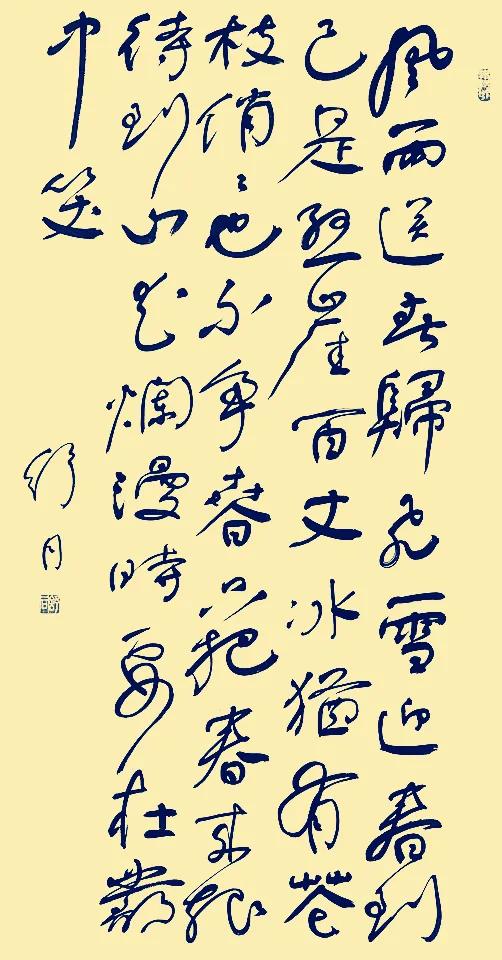 風雨送春歸飛雪迎春到
已是懸崖百丈冰猶有花
枝俏々也不争春只把春来报
待到山花爛漫時在叢
中笑
月